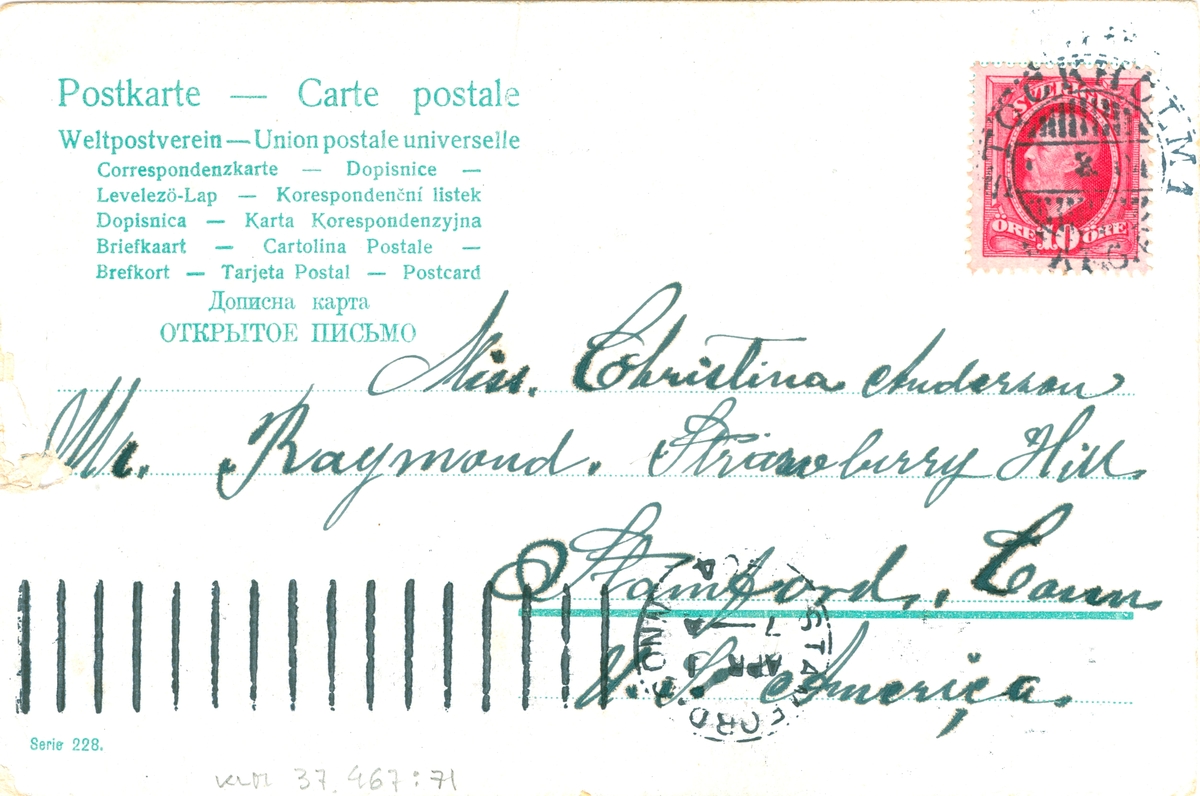 Postkarte — Carte postale
Weltpostverein — Union postale universelle
Correspondenzkarte — Dopisnice —
Levelező-Lap — Korespondenční listek
Dopisnica — Karta Korespondenzyjna
Briefkaart — Cartolina Postale —
Brefkort — Tarjeta Postal — Postcard
Дописна карта
ОТКРЫТОЕ ПИСЬМО
SVERIGE
STOCKHOLM 1
ÖRE 10 ÖRE
Miss. Christina Anderson
Mr. Raymond. Strawberry Hill
Stamford. Conn
U.S. America
STAMFORD CONN.
APR
7
Serie 228.
37.467:71